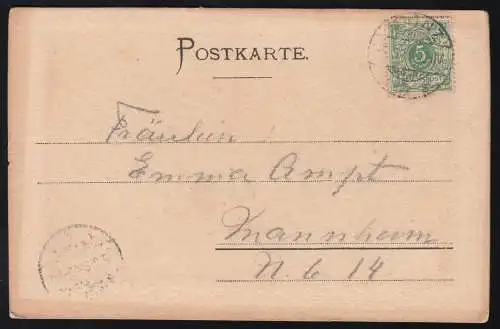 POSTKARTE.
5
Fräulein
Emma Ampt
Mannheim
N. 6 14